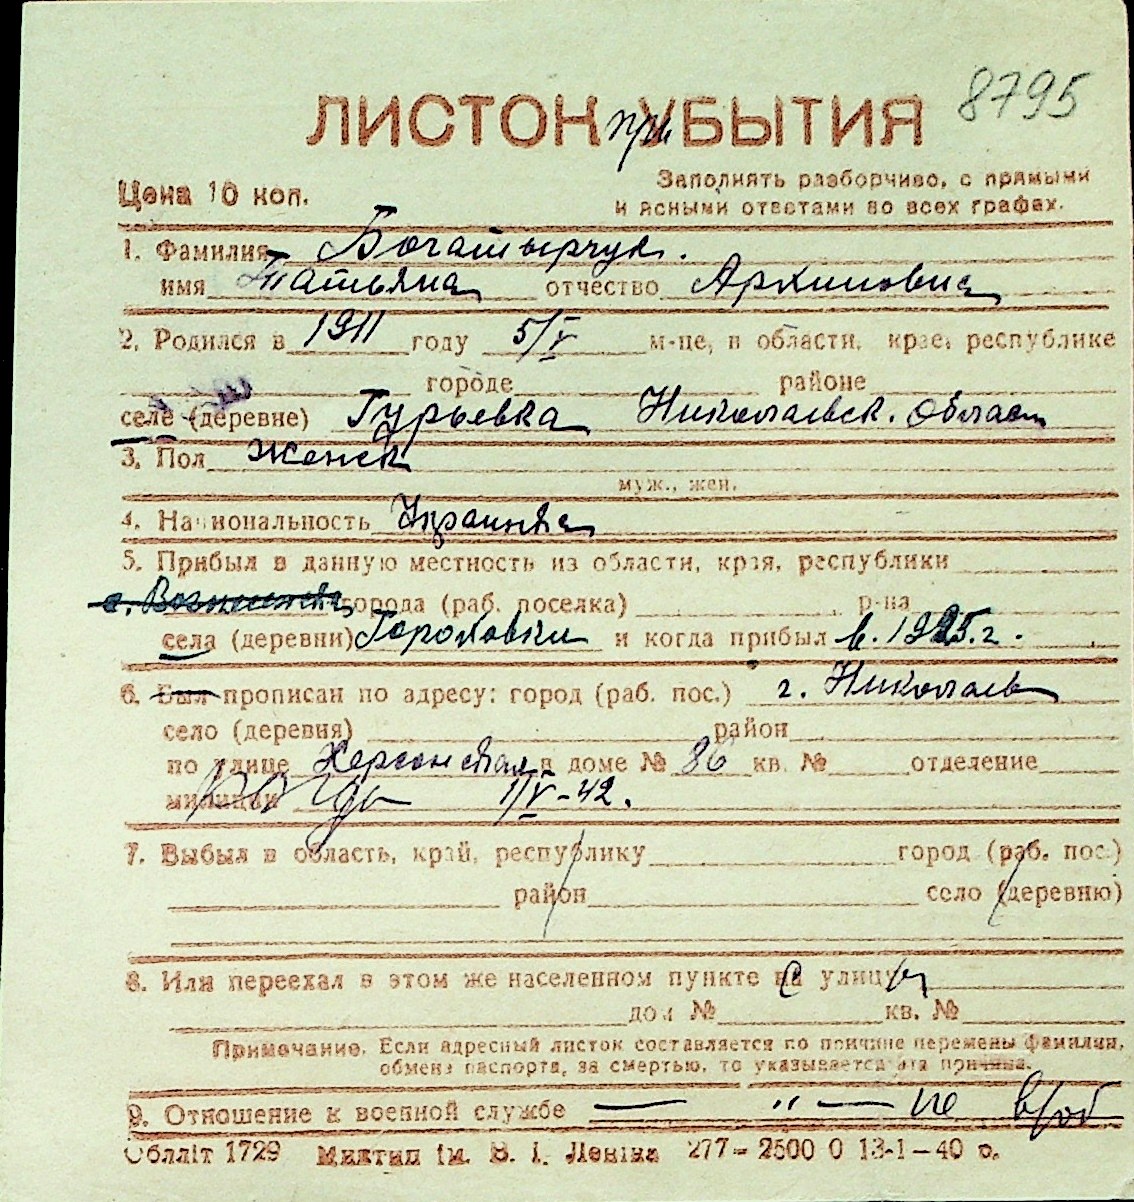 8795
ЛИСТОК при УБЫТИЯ
Цена 10 коп.
Заполнять разборчиво, с прямыми
и ясными ответами во всех графах.
1. Фамилия Богатырчук.
имя Татьяна отчество Архиповна
2. Родился в 1911 году 5/V м-це, в области, крае, республике
городе районе
селе (деревне) Гурьевка Николаевск. област
3. Пол женск
муж., жен.
4. Национальность Украинка
5. Прибыл в данную местность из области, края, республики
города (раб. поселка) р-на
села (деревни) Гороховки и когда прибыл в. 1925 г.
6. Был прописан по адресу: город (раб. пос.) г. Николаев
село (деревня) район
по улице Херсонская в доме № 86 кв. № отделение
милиции 1/V-42.
7. Выбыл в область, край, республику город (раб. пос.)
район село (деревню)
8. Или переехал в этом же населенном пункте на улицу
дом № кв. №
Примечание. Если адресный листок составляется по причине перемены фамилии,
обмена паспорта, за смертью, то указывается эта причина.
9. Отношение к военной службе — „ — не в/об
Обллiт 1729 Миктип iм. В. I. Ленiна 277–2500 О 13-1–40 р.